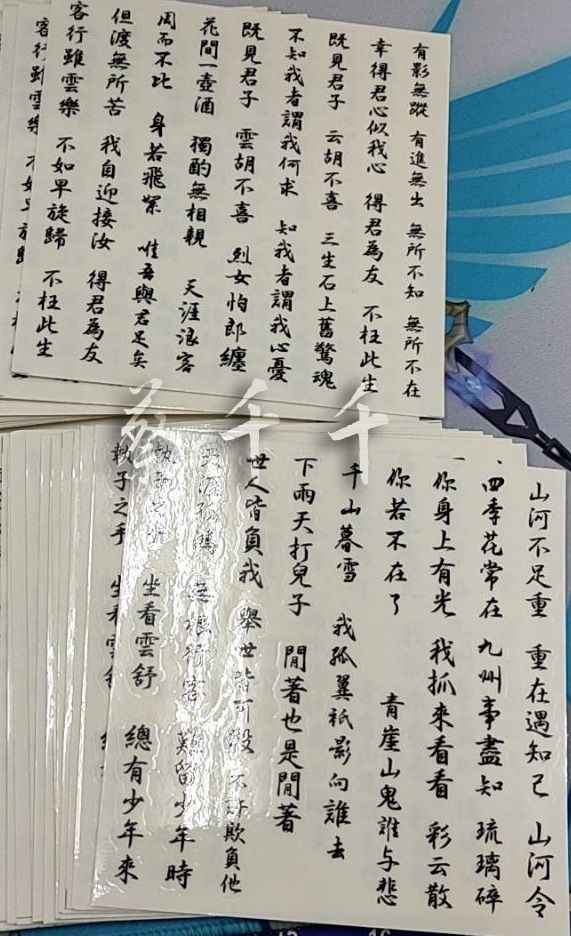 有影無蹤 有進無出 無所不知 無所不在
幸得君心似我心 得君為友 不枉此生
既見君子 云胡不喜 三生石上舊驚魂
不知我者謂我何求 知我者謂我心憂
既見君子 雲胡不喜 烈女怕郎纏
花間一壺酒 獨酌無相親 天涯浪客
周而不比 身若飛絮 唯吾與君足矣
但渡無所苦 我自迎接汝 得君為友
客行雖雲樂 不如早旋歸 不枉此生
客行雖雲樂 不如早旋歸
蔡千千
山河不足重 重在遇知己 山河令
四季花常在 九州事盡知 琉璃碎
你身上有光 我抓來看看 彩云散
你若不在了 青崖山鬼誰与悲
千山暮雪 我孤翼祇影向誰去
下雨天打兒子 閒著也是閒著
世人皆負我 舉世皆可殺 不許欺負他
天涯孤鴻 無根行客 莫留少年時
執子之手 坐看雲舒 總有少年來
執子之手 坐看雲舒